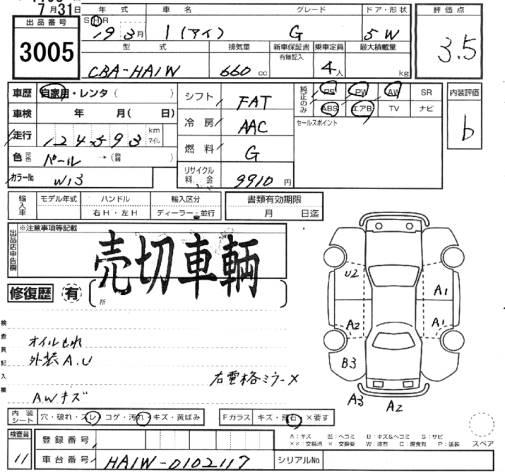 7月31日
出品番号
3005
年式 車名 グレード ドア・形状
S H 19年3月 i (アイ) G 5W
型式 排気量 新車保証書 乗車定員 最大積載量
有無記入
CBA-HA1W 660cc 4人 kg
評価点
3.5
車歴 自家用・レンタ( )
車検 年 月( 日)
走行 124593 km マイル
色 パール→(替)
カラーNo W13
シフト FAT
冷房 AAC
燃料 G
リサイクル料金 9910円
純正のみ PS PW AW SR
ABS エアB TV ナビ
セールスポイント
内装評価
b
輸入車 モデル年式 ハンドル 輸入区分
右H・左H ディーラー・並行
書類有効期限
月 日迄
出品店申告欄
※注意事項等記載
売切車輌
修復歴 有
所
検査員記入欄
オイルもれ
外装A.U
右電格ミラーX
AWキズ
U2 A1
A2 A1
B3
A3 A2
内装シート 穴・破れ・スレ・コゲ・汚れ・キズ・黄ばみ
Fガラス キズ・飛石・X要す
スペア
検査員
11
登録番号
車台番号 HA1W-0102117 シリアルNo